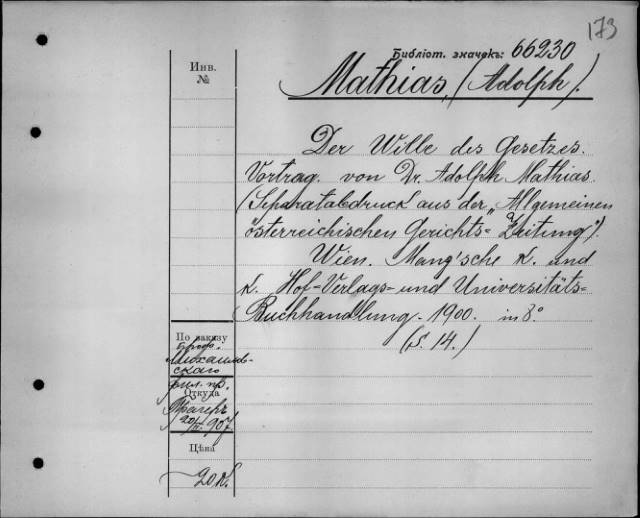 173
Библіот. значекъ: 66230
Инв.
№
Mathias, (Adolph).
Der Wille des Gesetzes.
Vortrag. von Dr. Adolph Mathias.
(Separatabdruck aus der „Allgemeinen
österreichischen Gerichts=Zeitung").
Wien. Mang'sche k. und
k. Hof=Verlags= und Universitäts=
Buchhandlung. 1900. in 8°
(S. 14.)
По заказу
проф.
Михайлов-
скаго
юл. пр.
Откуда
Трагеръ
907
Цѣна
20 к.